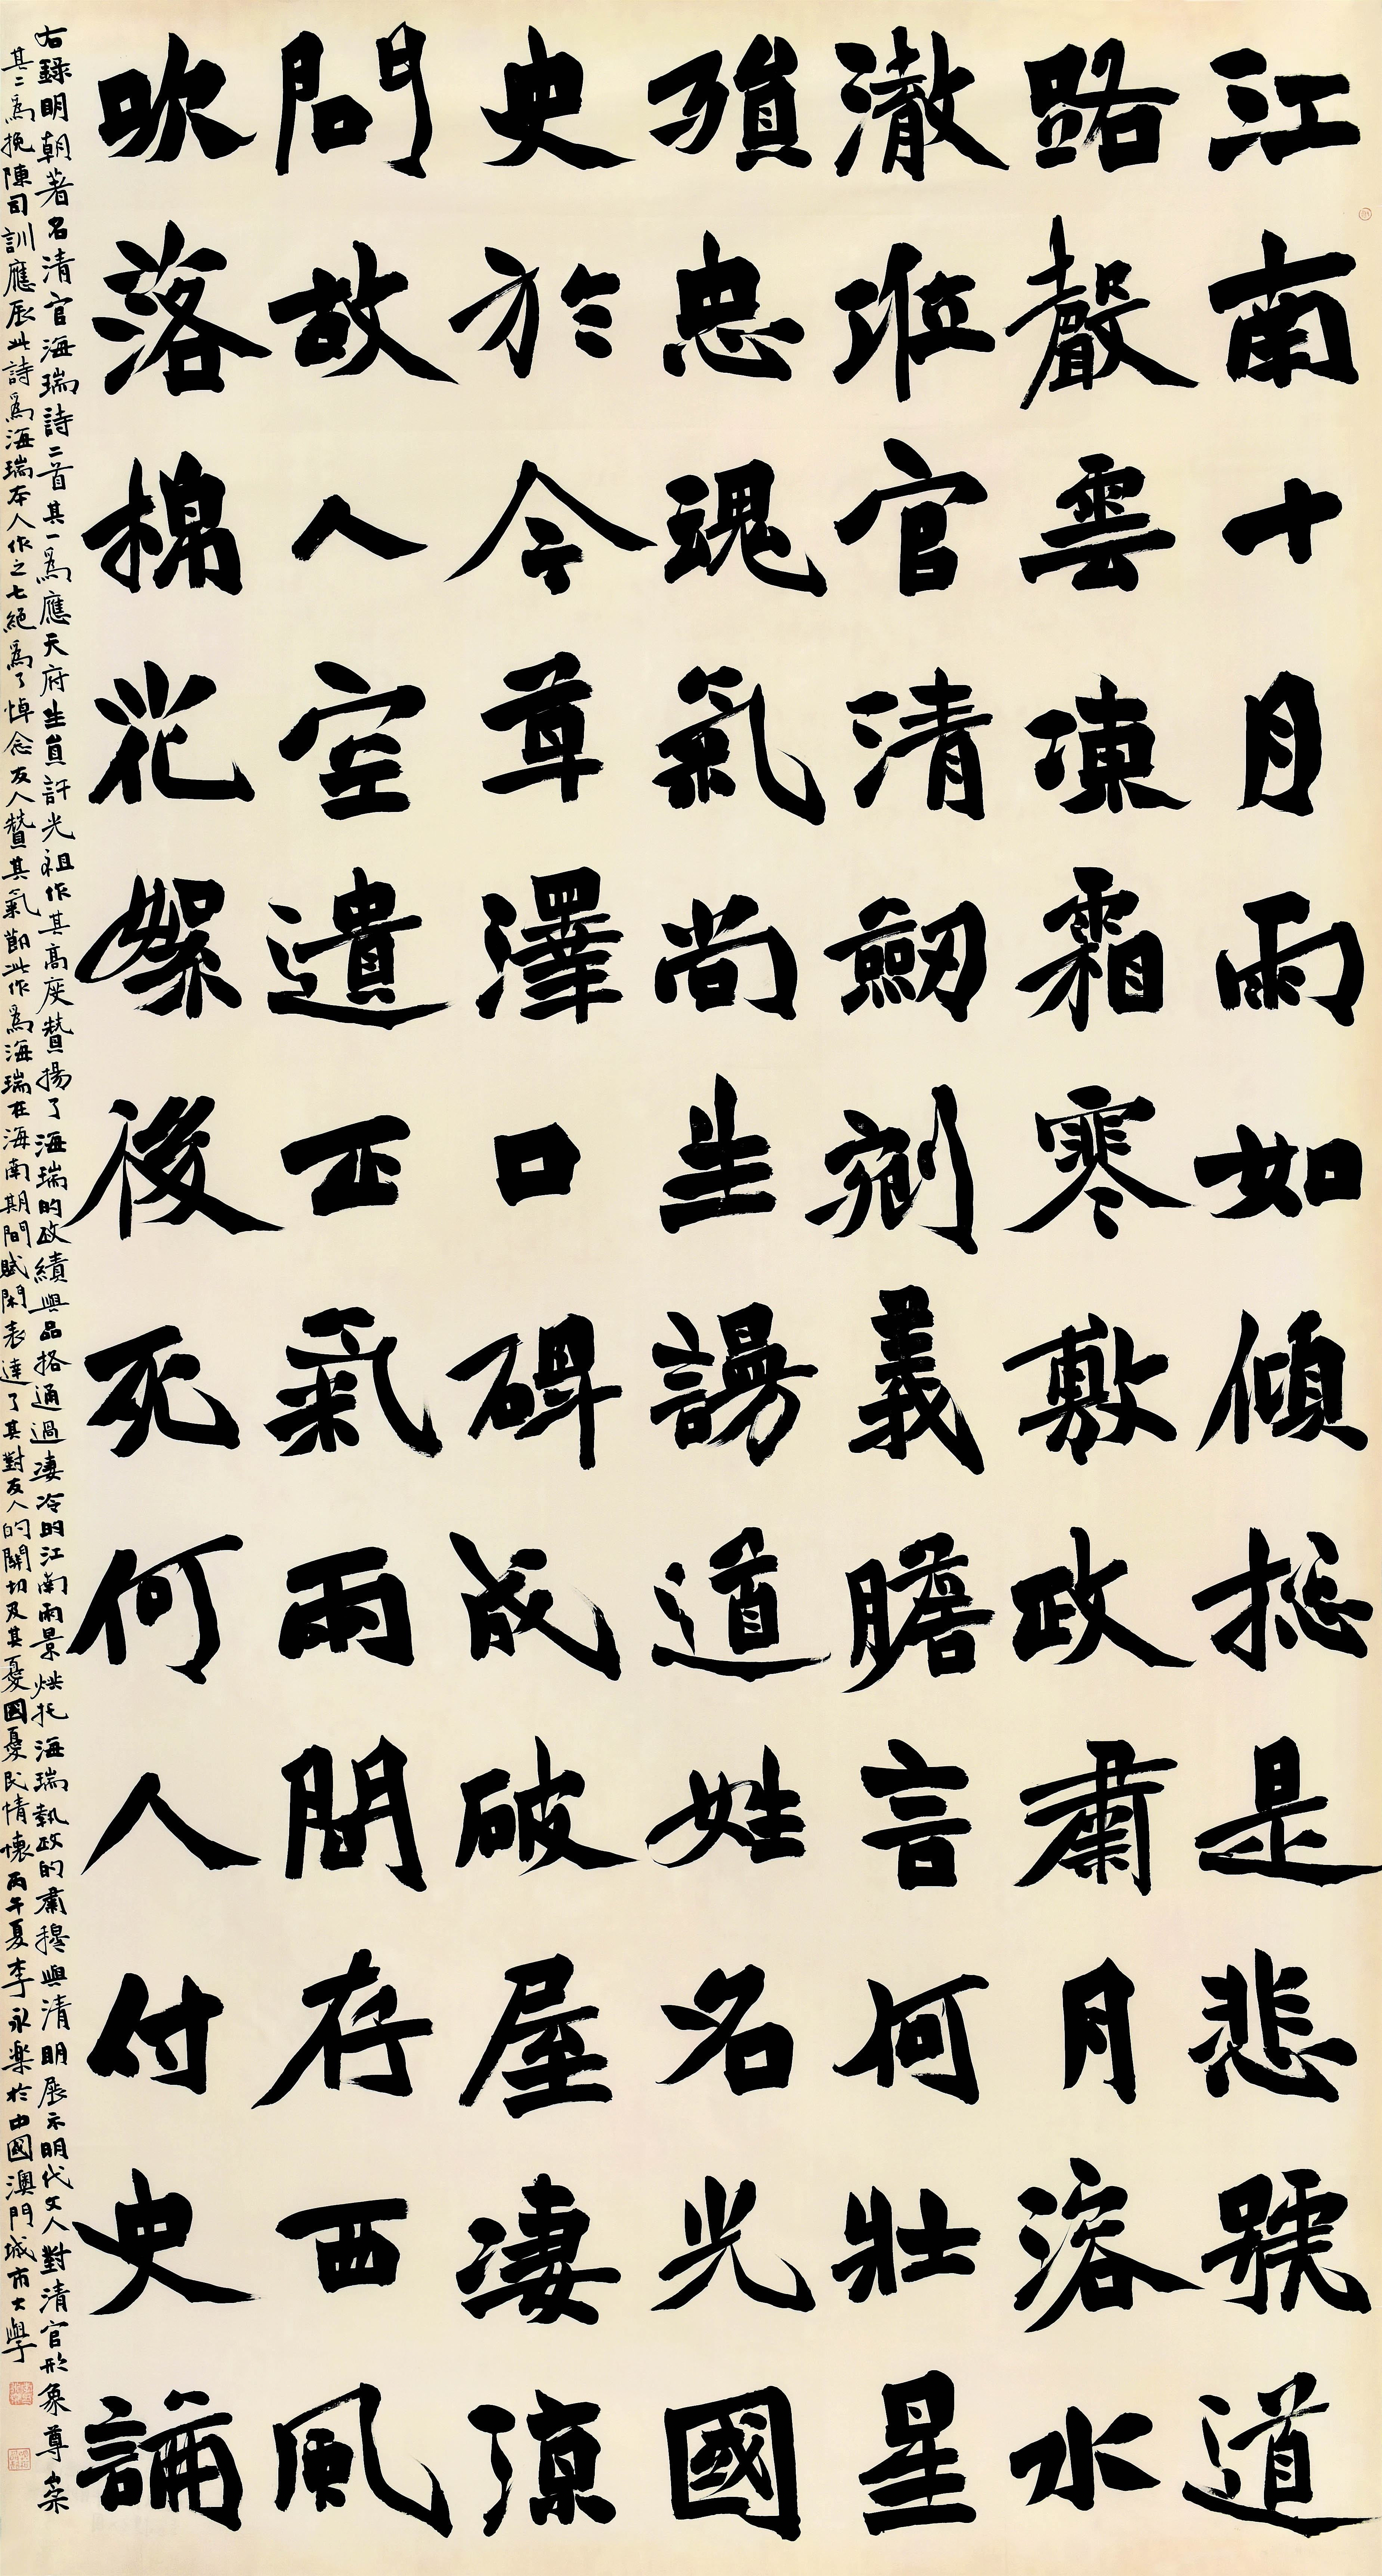 江南十月雨如傾總是悲號道
路聲雲凍霜寒敷政肅月溶水
澈班官清劒剜義膽言何壯星
殞忠魂氣尚生謗道姓名光國
史於今草澤口碑成破屋淒涼
問故人空遺正氣兩間存西風
吹落棉花絮後死何人付史論
右錄明朝著名清官海瑞詩二首其一為應天府生員許光祖作其高度贊揚了海瑞的政績與品格通過淒冷的江南雨景烘托海瑞執政的肅穆與清明展示明代文人對清官形象尊崇
其二為挽陳司訓應辰此詩為海瑞本人作之七絕為了悼念友人贊其氣節此作為海瑞在海南期間賦閑表達了其對友人的關切及其憂國憂民情懷丙午夏李永樂於中國澳門城市大學